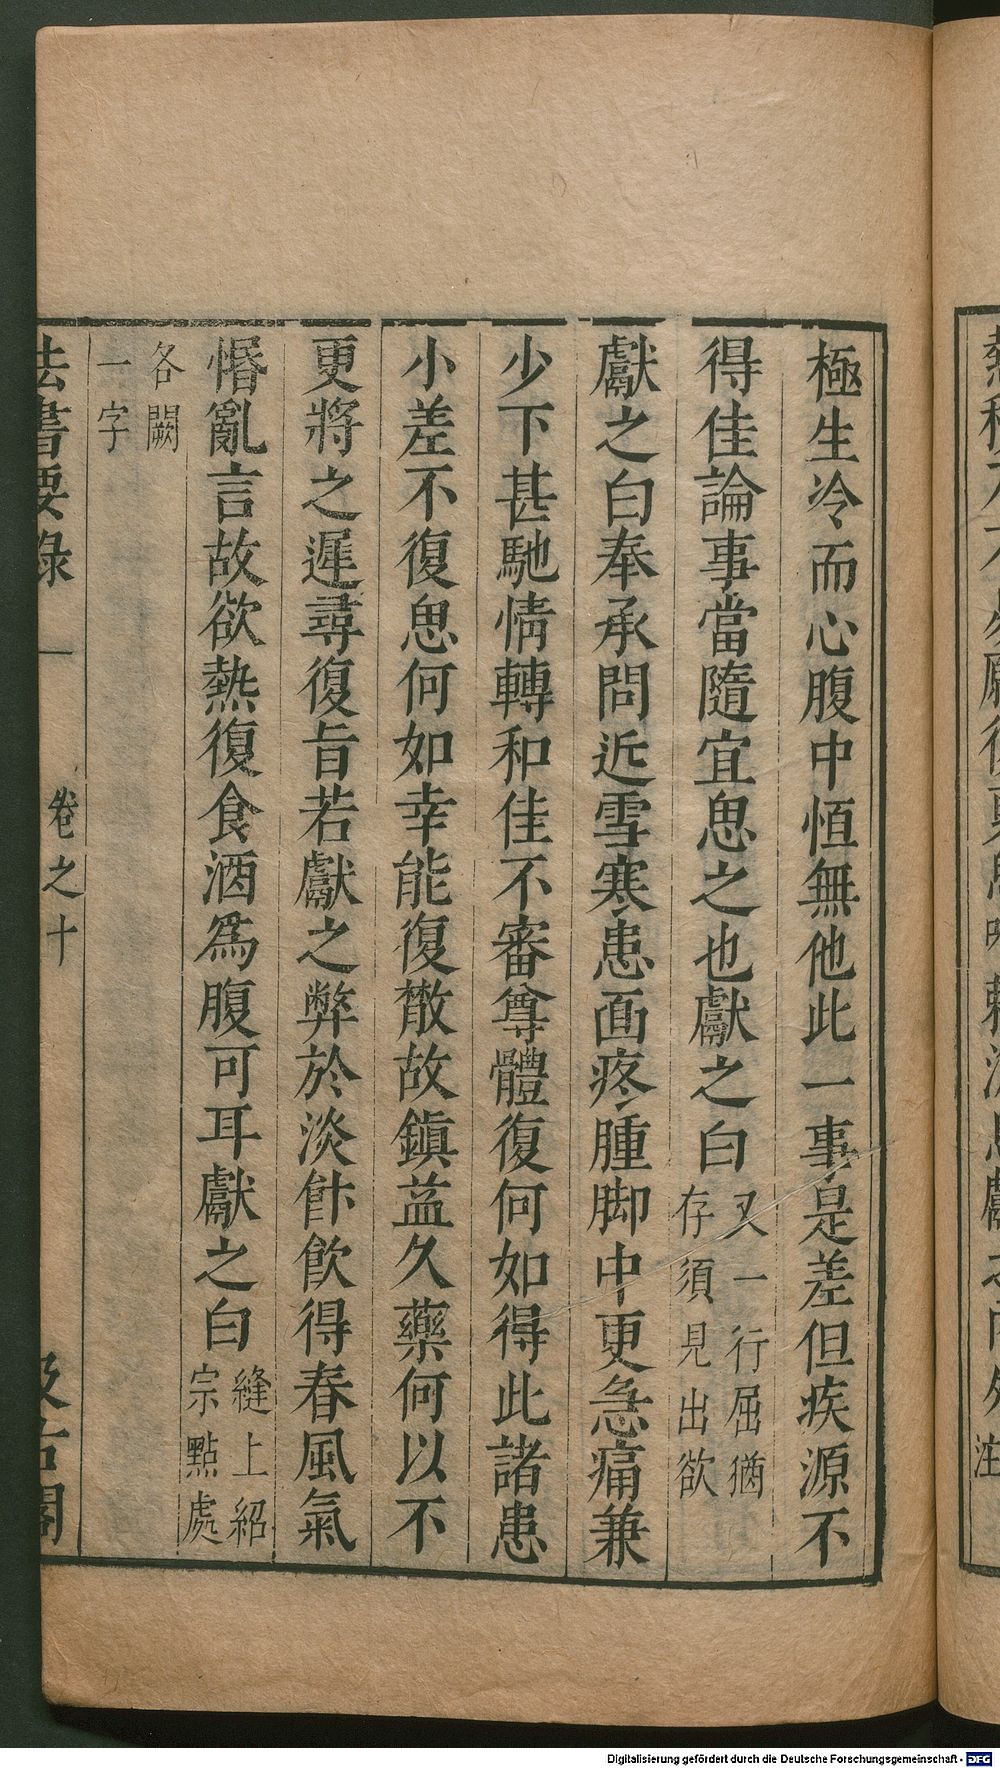 極生冷而心腹中恆無他此一事是差但疾源不
得佳論事當隨宜思之也獻之白又一行屈猶存須見出欲
獻之白奉承問近雪寒患面疼腫脚中更急痛兼
少下甚馳情轉和佳不審尊體復何如得此諸患
小差不復思何如幸能復散故鎮益久藥何以不
更將之遲尋復旨若獻之弊於淡飰飲得春風氣
惛亂言故欲熱復食酒為腹可耳獻之白縫上紹宗點處
各闕一字
法書要錄 卷之十 汲古閣
Digitalisierung gefördert durch die Deutsche Forschungsgemeinschaft - DFG